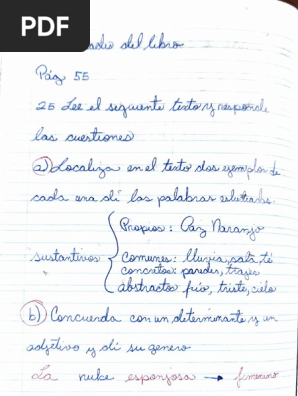 PDF
del libro
Pág 55
25 Lee el seguiente texto y responde
las cuestiones
a) Localiza en el texto dos ejemplos de
cada una di las palabras
Propios: Paz Naranjo
sustantivos Comunes: lluvia, pata, té
concretos: paredes, trajes
abstractos frío, triste, cielo
b) Concuerda con un determinante y un
adjetivo y di su genero
La nube esponjosa → femenino